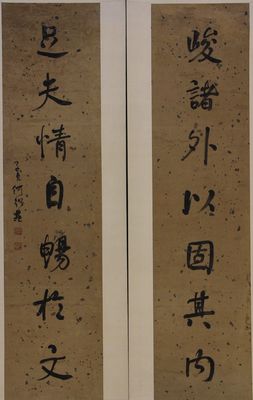 峻諸外以固其內
足夫情自暢於文
子貞何紹基